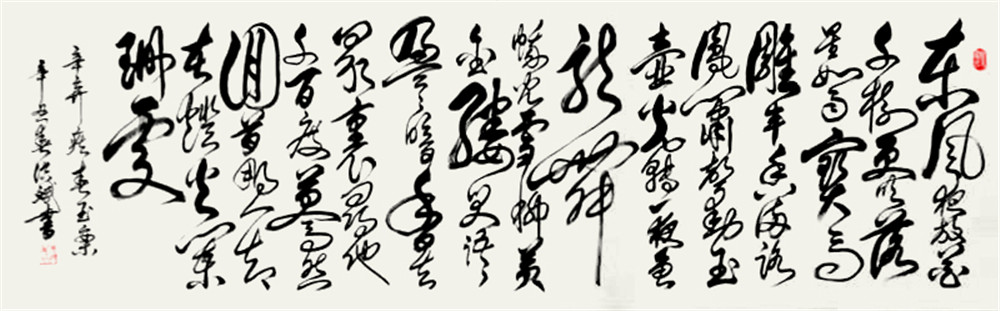 東風夜放花
千樹更吹落
星如雨寶馬
雕車香滿路
鳳簫聲動玉
壺光轉一夜魚
龍舞
蛾兒雪柳黃
金縷笑語
盈盈暗香去
眾裏尋他
千百度驀然
回首那人却
在燈火闌
珊處
辛弃疾青玉案
辛丑春書